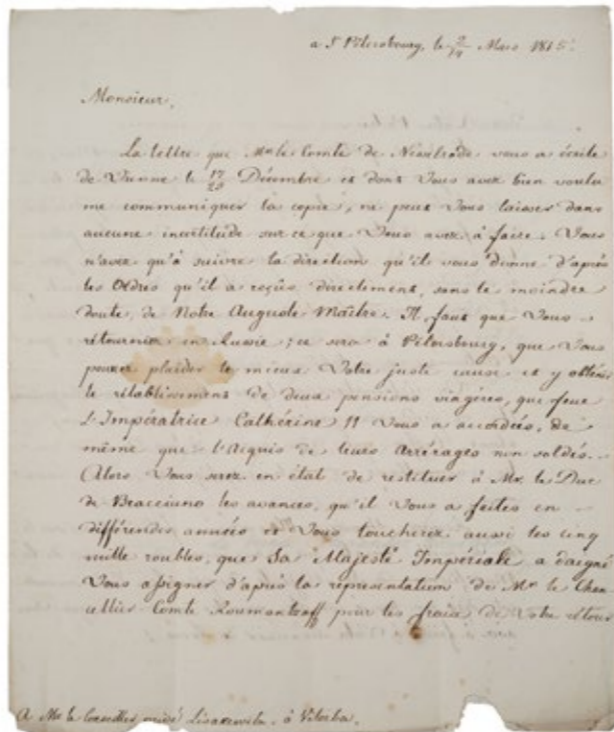 a S. Pétersbourg, le 2/14 Mars 1815.
Monsieur,
La lettre que Mr. le Comte de Nesselrode vous a écrite
de Vienne le 17/29 Décembre et dont Vous avez bien voulu
me communiquer la copie, ne peut Vous laisser dans
aucune incertitude sur ce que Vous avez à faire. Vous
n'avez qu'à suivre la direction qu'il vous donne d'après
les Ordres qu'il a reçus directement, sans le moindre
doute, de Notre Auguste Maître. Il faut que Vous
rétourniez en Russie; ce sera à Pétersbourg, que Vous
pourez plaider le mieux Votre juste cause et y obtenir
le rétablissement de deux pensions viagères, que feue
l'Impératrice Cathérine II Vous a accordées, de
même que l'acquis de leurs Arrérages non soldés.
Alors Vous serez en état de restituer à Mr. le Duc
de Bracciano les avances, qu'il Vous a faites en
différendes années et Vous toucherez aussi les cinq
mille roubles, que Sa Majesté Impériale a daigné
Vous assigner d'après la représentation de Mr. le Chan
cellier Comte Roumantzoff pour les fraix de Votre rétour
A Mr. le Conseiller à Viterbe.